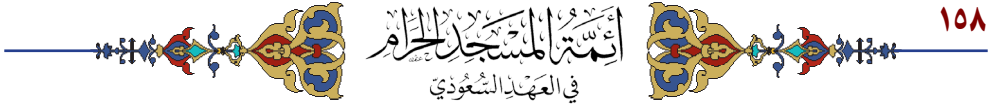 ١٥٨
أَئِمَّةُ المَسْجِدِ الحَرَامِ
في العَهْدِ السُّعُودِيّ